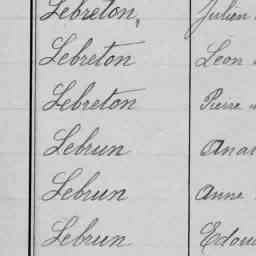 Lebreton, Julien
Lebreton Léon
Lebreton Pierre
Lebrun
Lebrun Anne
Lebrun